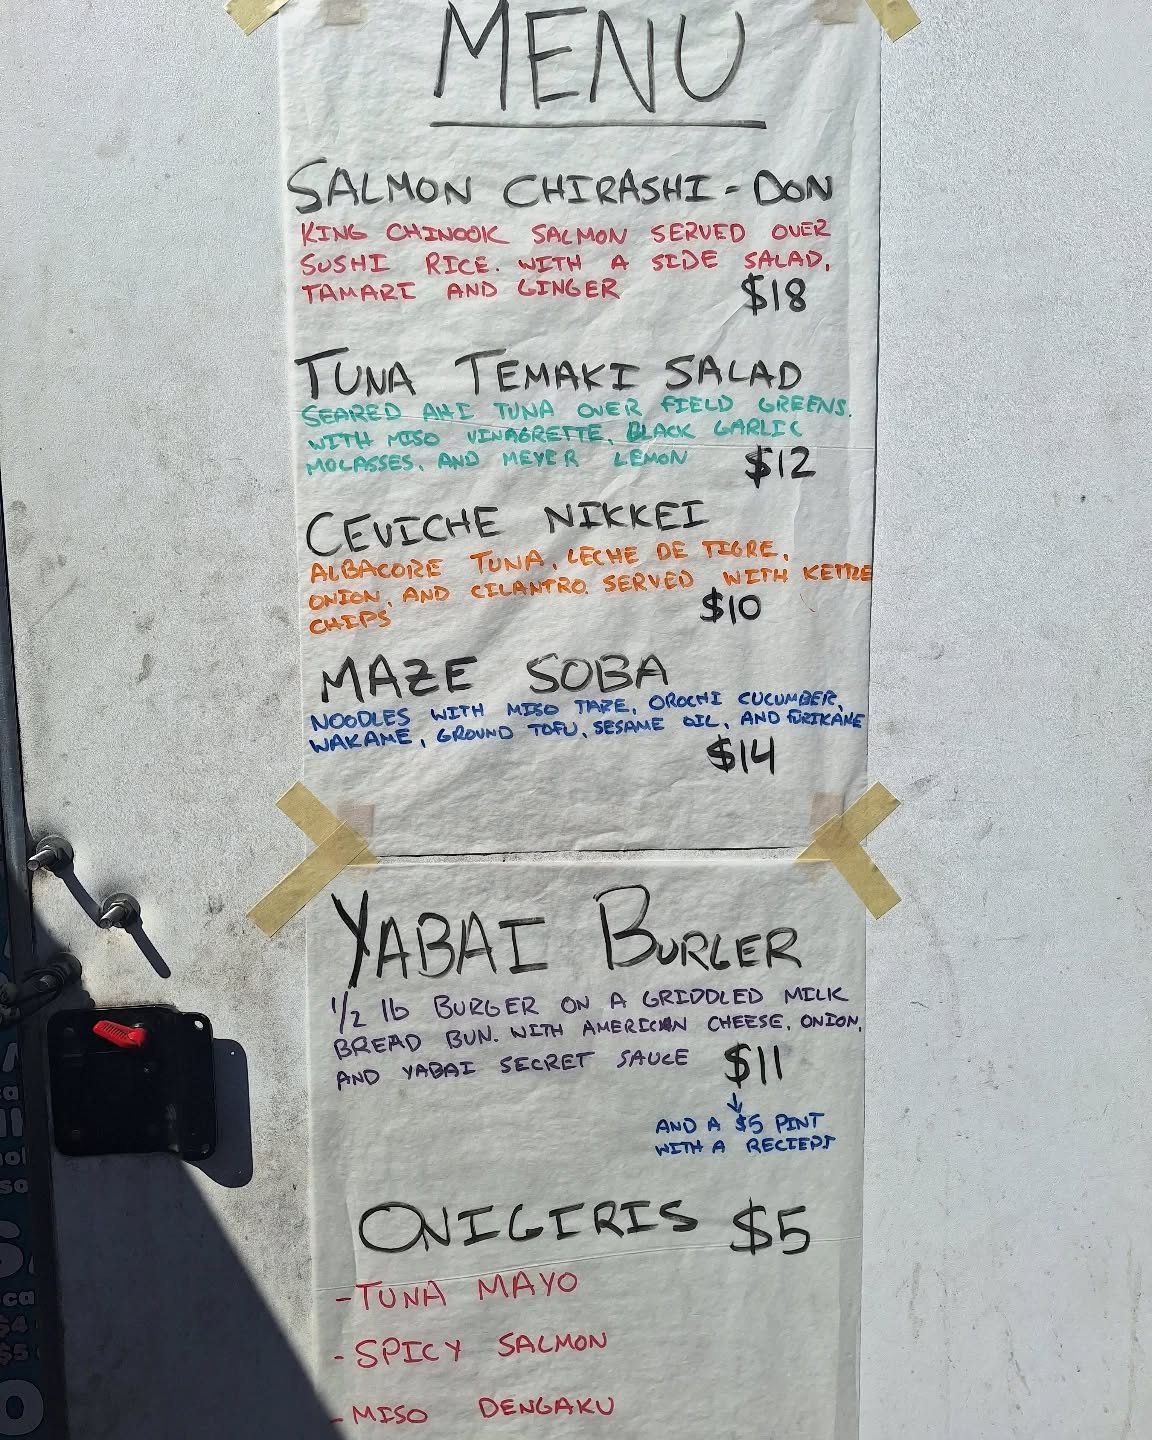 MENU
SALMON CHIRASHI-DON
KING CHINOOK SALMON SERVED OVER
SUSHI RICE. WITH A SIDE SALAD,
TAMARI AND GINGER $18
TUNA TEMAKI SALAD
SEARED AHI TUNA OVER FIELD GREENS.
WITH MISO VINAGRETTE, BLACK GARLIC
MOLASSES, AND MEYER LEMON $12
CEVICHE NIKKEI
ALBACORE TUNA, LECHE DE TIGRE,
ONION, AND CILANTRO. SERVED WITH KETTLE
CHIPS $10
MAZE SOBA
NOODLES WITH MISO TARE, OROCHI CUCUMBER,
WAKAME, GROUND TOFU, SESAME OIL, AND FURIKAKE
$14
YABAI BURGER
1/2 lb BURGER ON A GRIDDLED MILK
BREAD BUN. WITH AMERICAN CHEESE, ONION,
AND YABAI SECRET SAUCE $11
AND A $5 PINT
WITH A RECIEPT
ONIGIRIS $5
-TUNA MAYO
-SPICY SALMON
-MISO DENGAKU
ca
$4
$5